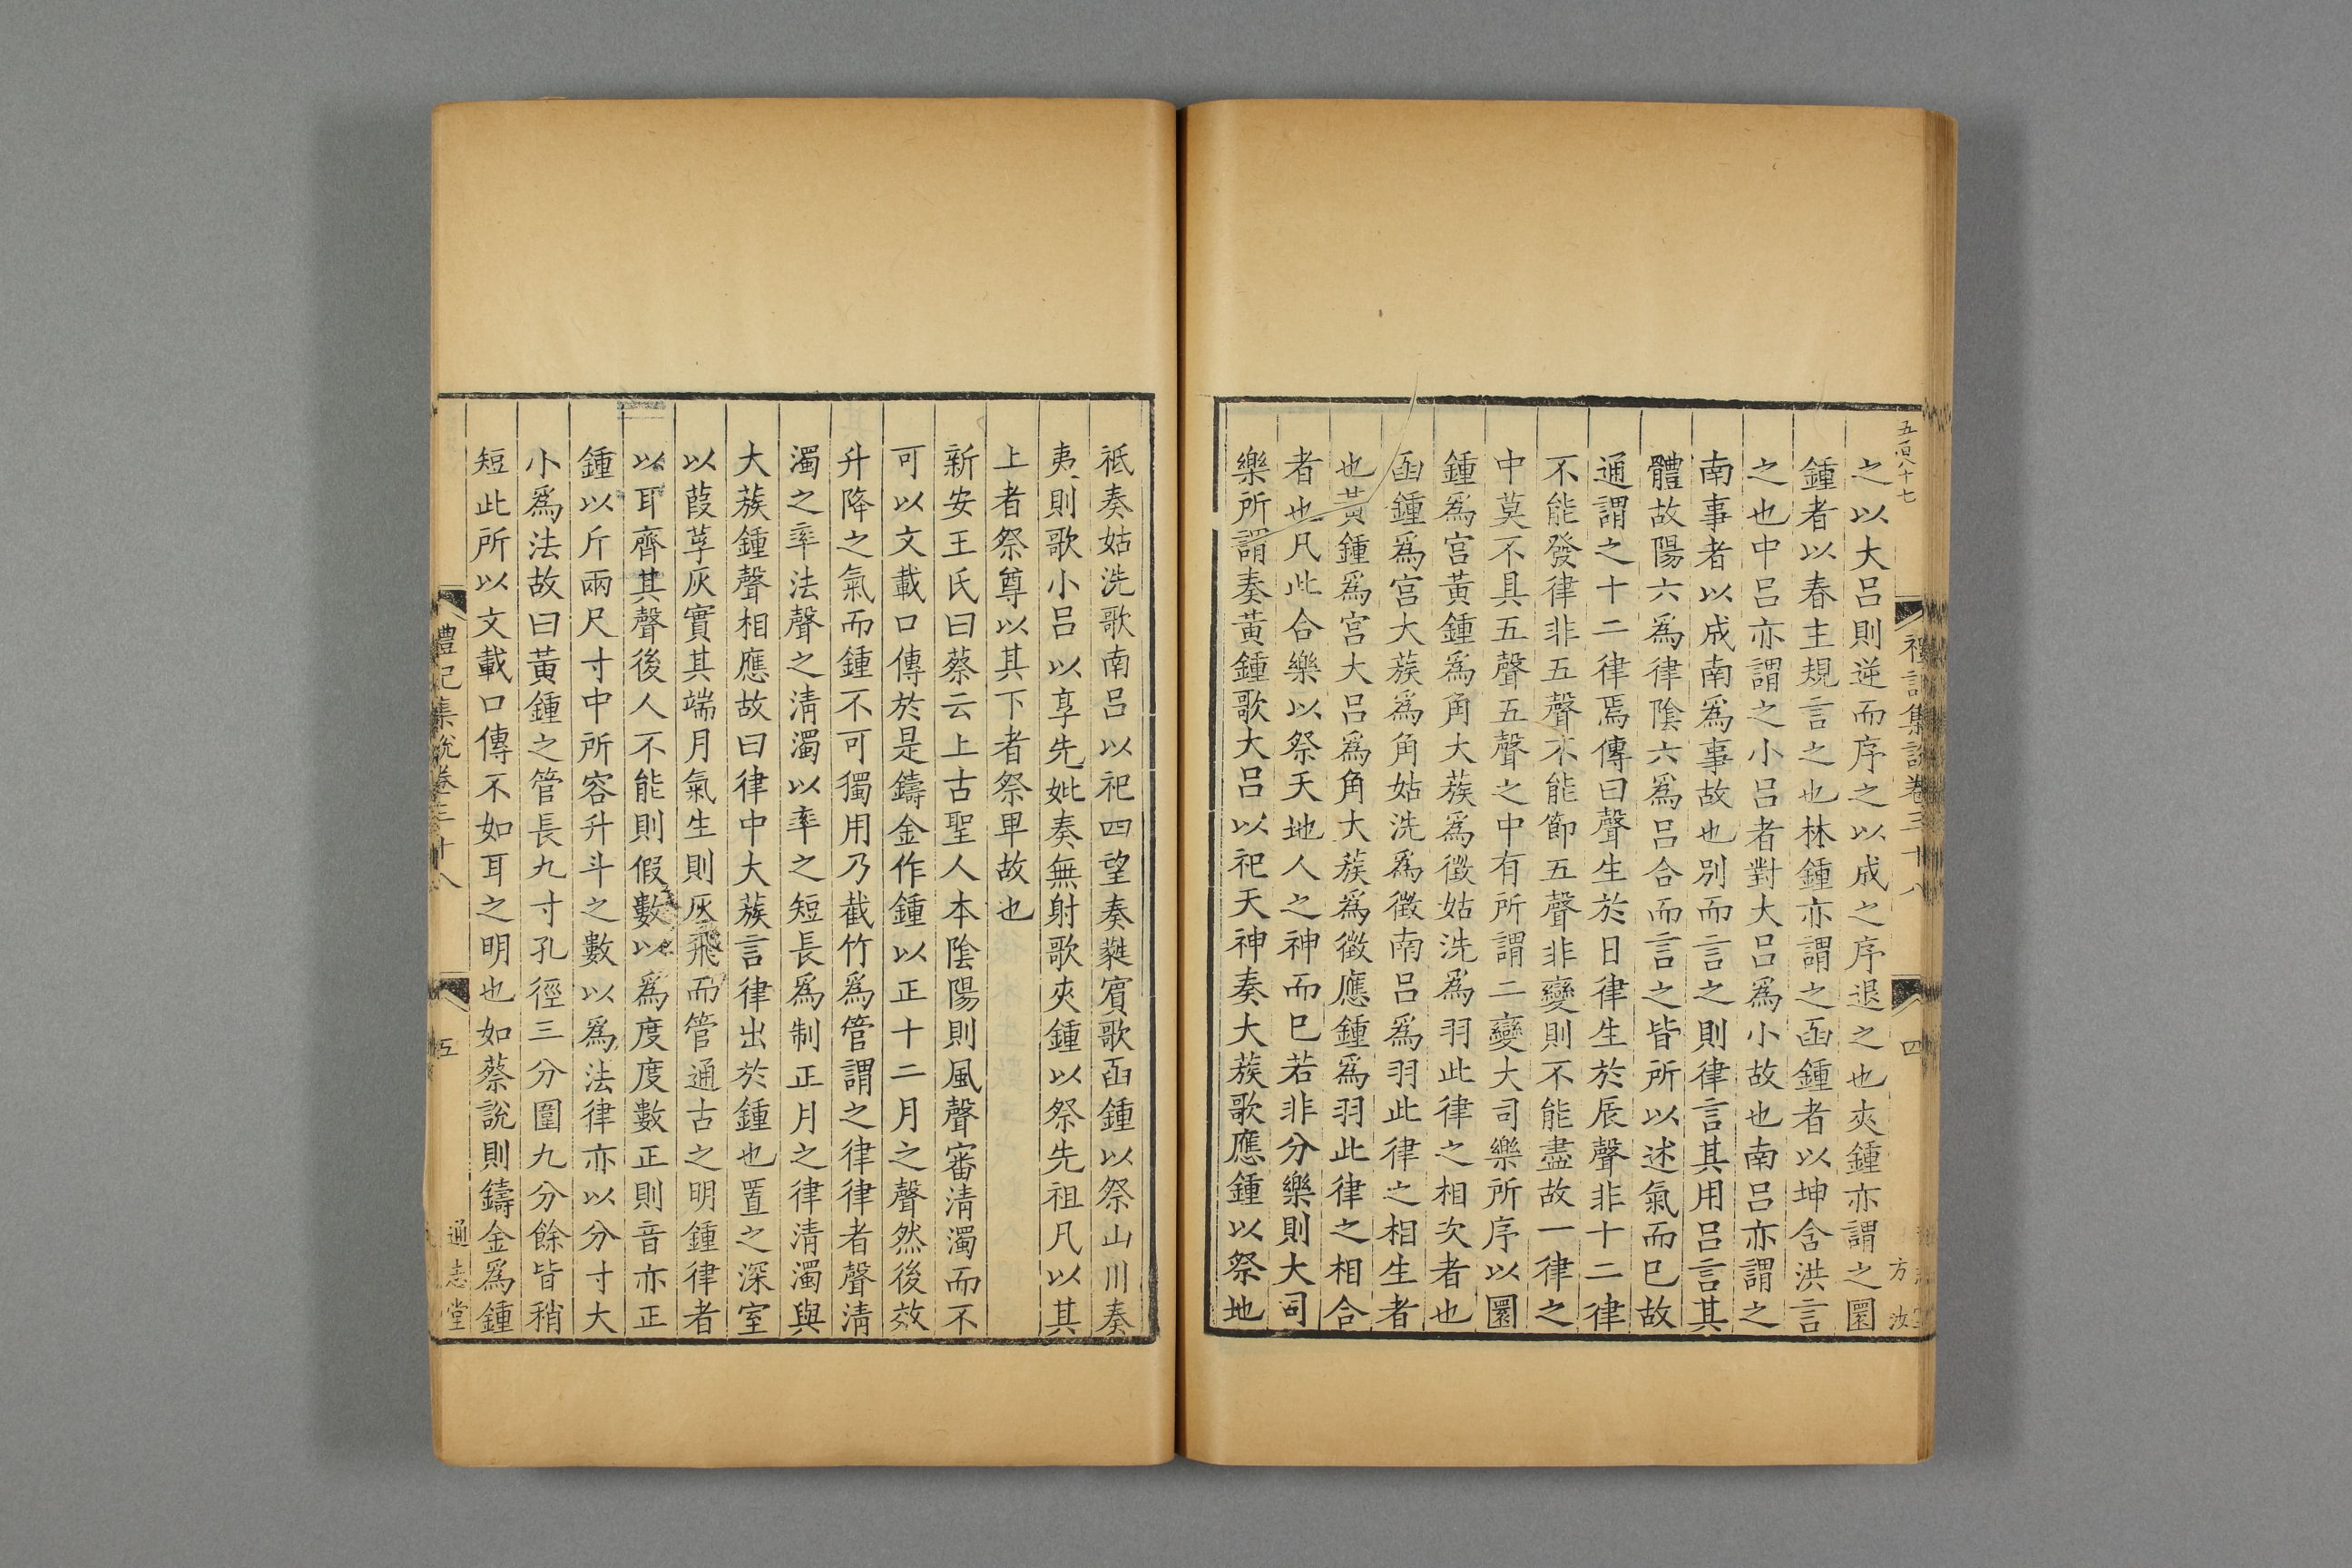 五百八十七
之以大呂則逆而序之以成之序退之也夾鍾亦謂之圜
鍾者以春主規言之也林鍾亦謂之凾鍾者以坤含洪言
之也中呂亦謂之小呂者對大呂爲小故也南呂亦謂之
南事者以成南爲事故也別而言之則律言其用呂言其
體故陽六爲律陰六爲呂合而言之皆所以述氣而已故
通謂之十二律焉傳曰聲生於日律生於辰聲非十二律
不能發律非五聲不能節五聲非變則不能盡故一律之
中莫不具五聲五聲之中有所謂二變大司樂所序以圜
鍾爲宮黃鍾爲角大蔟爲徵姑洗爲羽此律之相次者也
凾鍾爲宮大蔟爲角姑洗爲徵南呂爲羽此律之相生者
也黃鍾爲宮大呂爲角大蔟爲徵應鍾爲羽此律之相合
者也凡此合樂以祭天地人之神而已若非分樂則大司
樂所謂奏黃鍾歌大呂以祀天神奏大蔟歌應鍾以祭地
禮記集說卷三十八
四
方汝
祗奏姑洗歌南呂以祀四望奏蕤賓歌凾鍾以祭山川奏
夷則歌小呂以享先妣奏無射歌夾鍾以祭先祖凡以其
上者祭尊以其下者祭卑故也
新安王氏曰蔡云上古聖人本陰陽則風聲審淸濁而不
可以文載口傳於是鑄金作鍾以正十二月之聲然後效
升降之氣而鍾不可獨用乃截竹爲管謂之律律者聲淸
濁之率法聲之淸濁以率之短長爲制正月之律淸濁與
大蔟鍾聲相應故曰律中大蔟言律出於鍾也置之深室
以葭莩灰實其端月氣生則灰飛而管通古之明鍾律者
以耳齊其聲後人不能則假數以爲度度數正則音亦正
鍾以斤兩尺寸中所容升斗之數以爲法律亦以分寸大
小爲法故曰黃鍾之管長九寸孔徑三分圍九分餘皆稍
短此所以文載口傳不如耳之明也如蔡說則鑄金爲鍾
禮記集說卷三十八
五
通志堂